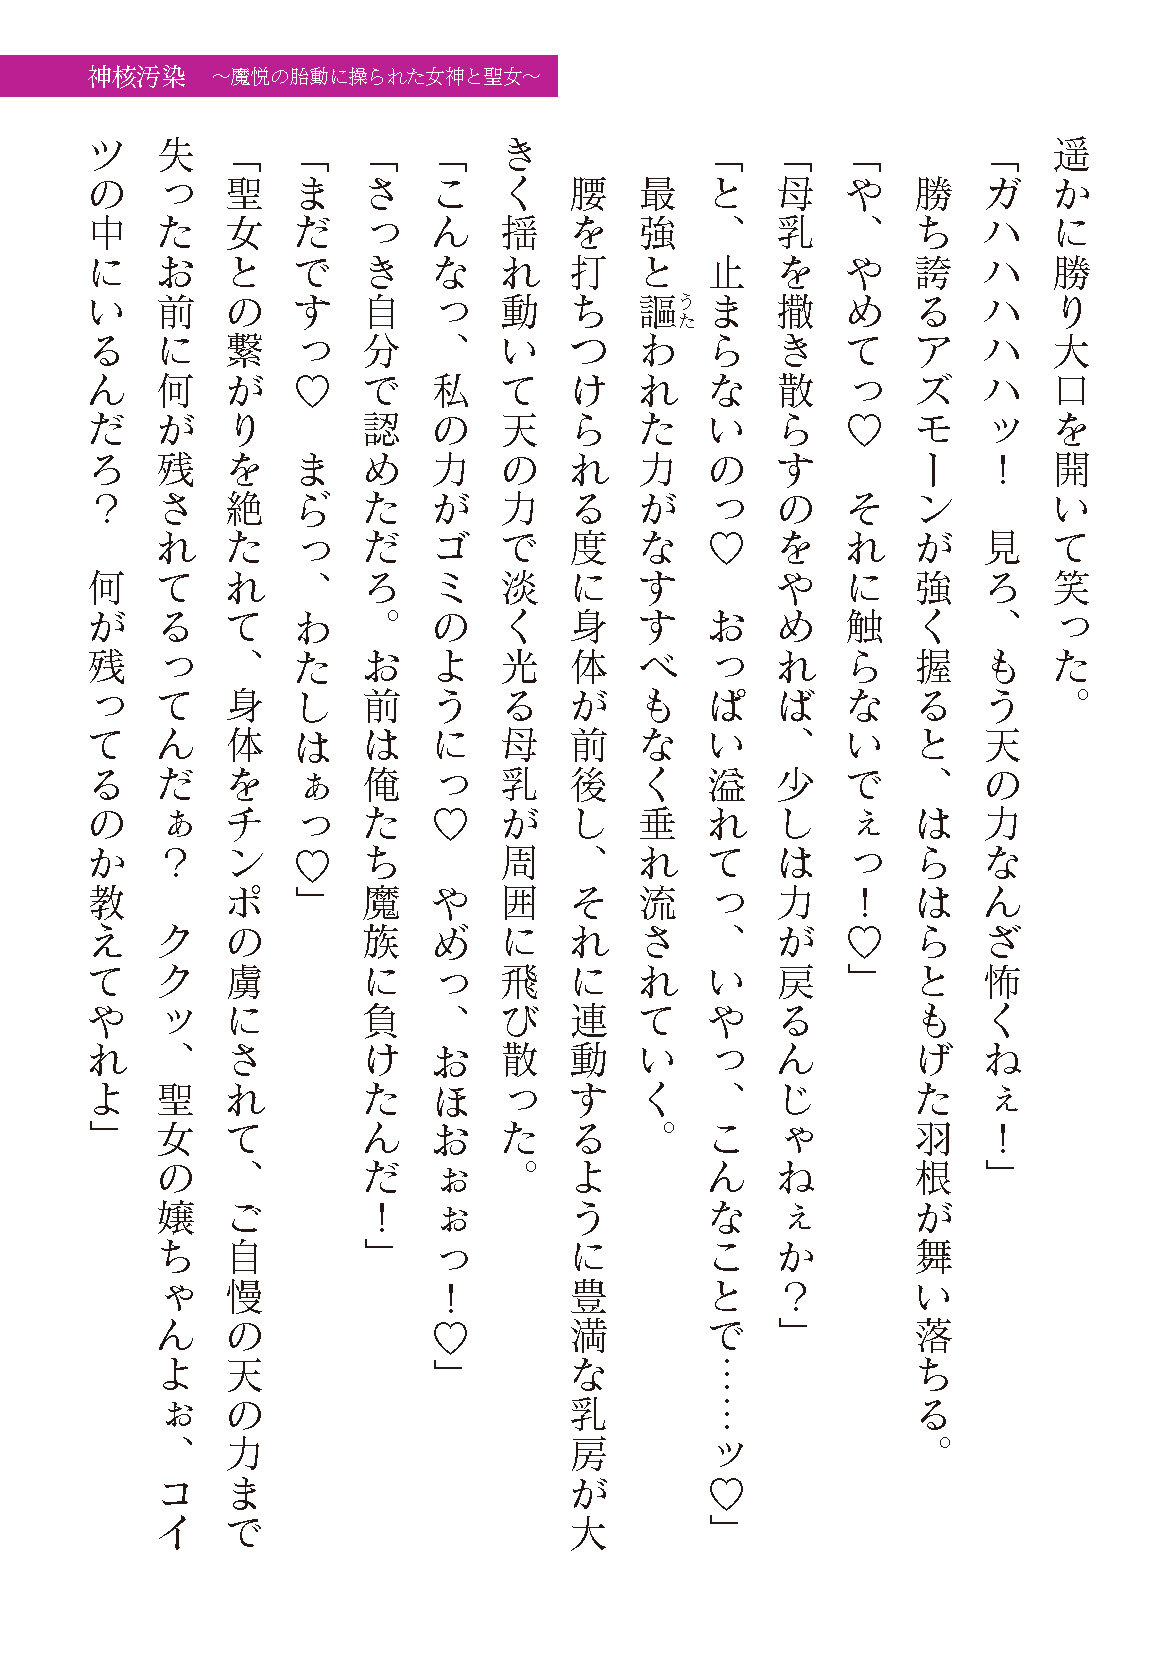 神核汚染　～魔悦の胎動に操られた女神と聖女～
遥かに勝り大口を開いて笑った。
「ガハハハハハッ！　見ろ、もう天の力なんざ怖くねぇ！」
　勝ち誇るアズモーンが強く握ると、はらはらともげた羽根が舞い落ちる。
「や、やめてっ♡　それに触らないでぇっ！♡」
「母乳を撒き散らすのをやめれば、少しは力が戻るんじゃねぇか？」
「と、止まらないのっ♡　おっぱい溢れてっ、いやっ、こんなことで……ッ♡」
　最強と謳われた力がなすすべもなく垂れ流されていく。
うた
　腰を打ちつけられる度に身体が前後し、それに連動するように豊満な乳房が大
きく揺れ動いて天の力で淡く光る母乳が周囲に飛び散った。
「こんなっ、私の力がゴミのようにっ♡　やめ゛っ、おほおぉぉっ！♡」
「さっき自分で認めただろ。お前は俺たち魔族に負けたんだ！」
「まだですっ♡　まら゛っ、わたしはぁっ♡」
「聖女との繋がりを絶たれて、身体をチンポの虜にされて、ご自慢の天の力まで
失ったお前に何が残されてるってんだぁ？　ククッ、聖女の嬢ちゃんよぉ、コイ
ツの中にいるんだろ？　何が残ってるのか教えてやれよ」